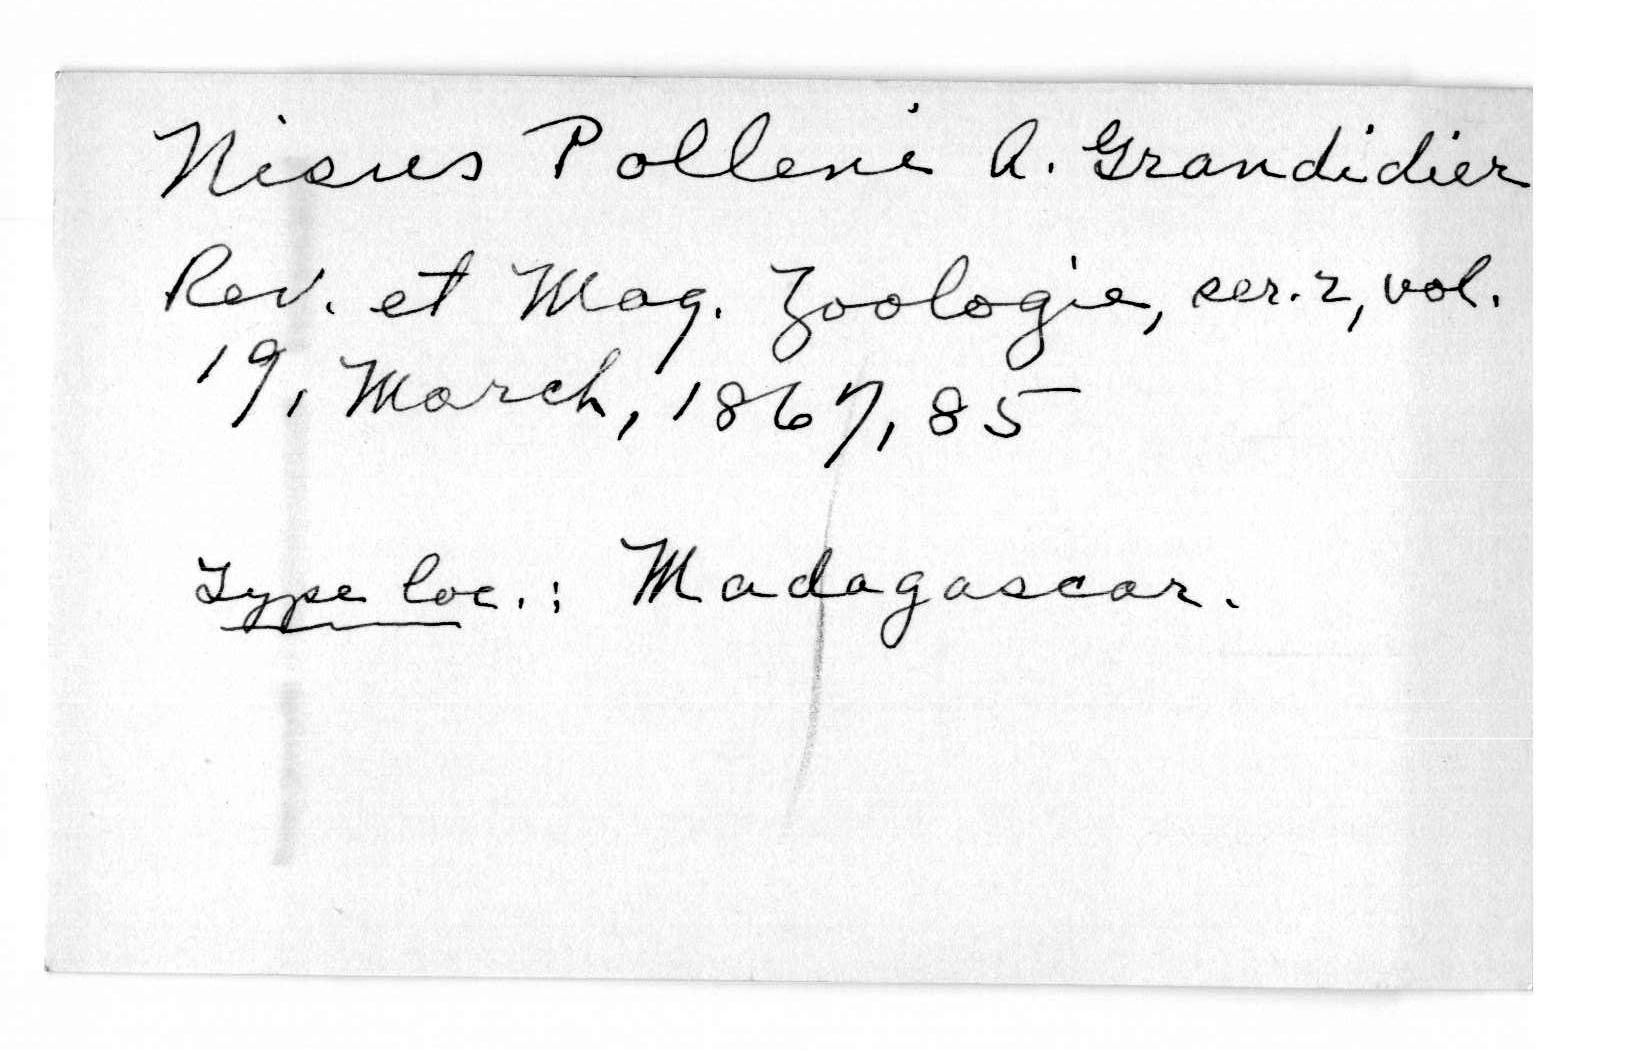 Nisus Polleni A. Grandidier
Rev. et Mag. Zoologie, ser. 2, vol.
19, March, 1867, 85
Type loc.: Madagascar.